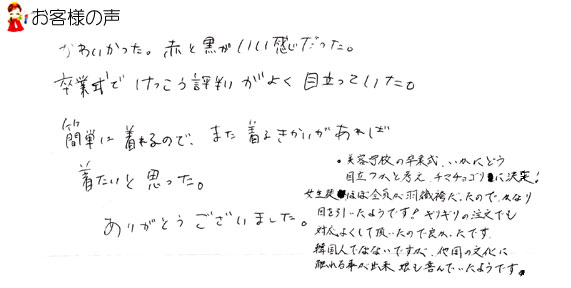 お客様の声
かわいかった。赤と黒がいい感じだった。
卒業式で けっこう評判がよく 目立っていた。
簡単に着れるので、また着るきかいがあれば
着たいと思った。
ありがとうございました。
・美容学校の卒業式、いかにどう
目立つかと考え チマチョゴリに決定!
女生徒ほぼ全員が羽織袴だったので、かなり
目を引いたようです!ギリギリの注文でも
対応よくして頂いたので良かったです
韓国人ではないですが、他国の文化に
触れる事が出来 娘も喜んでいたようです。